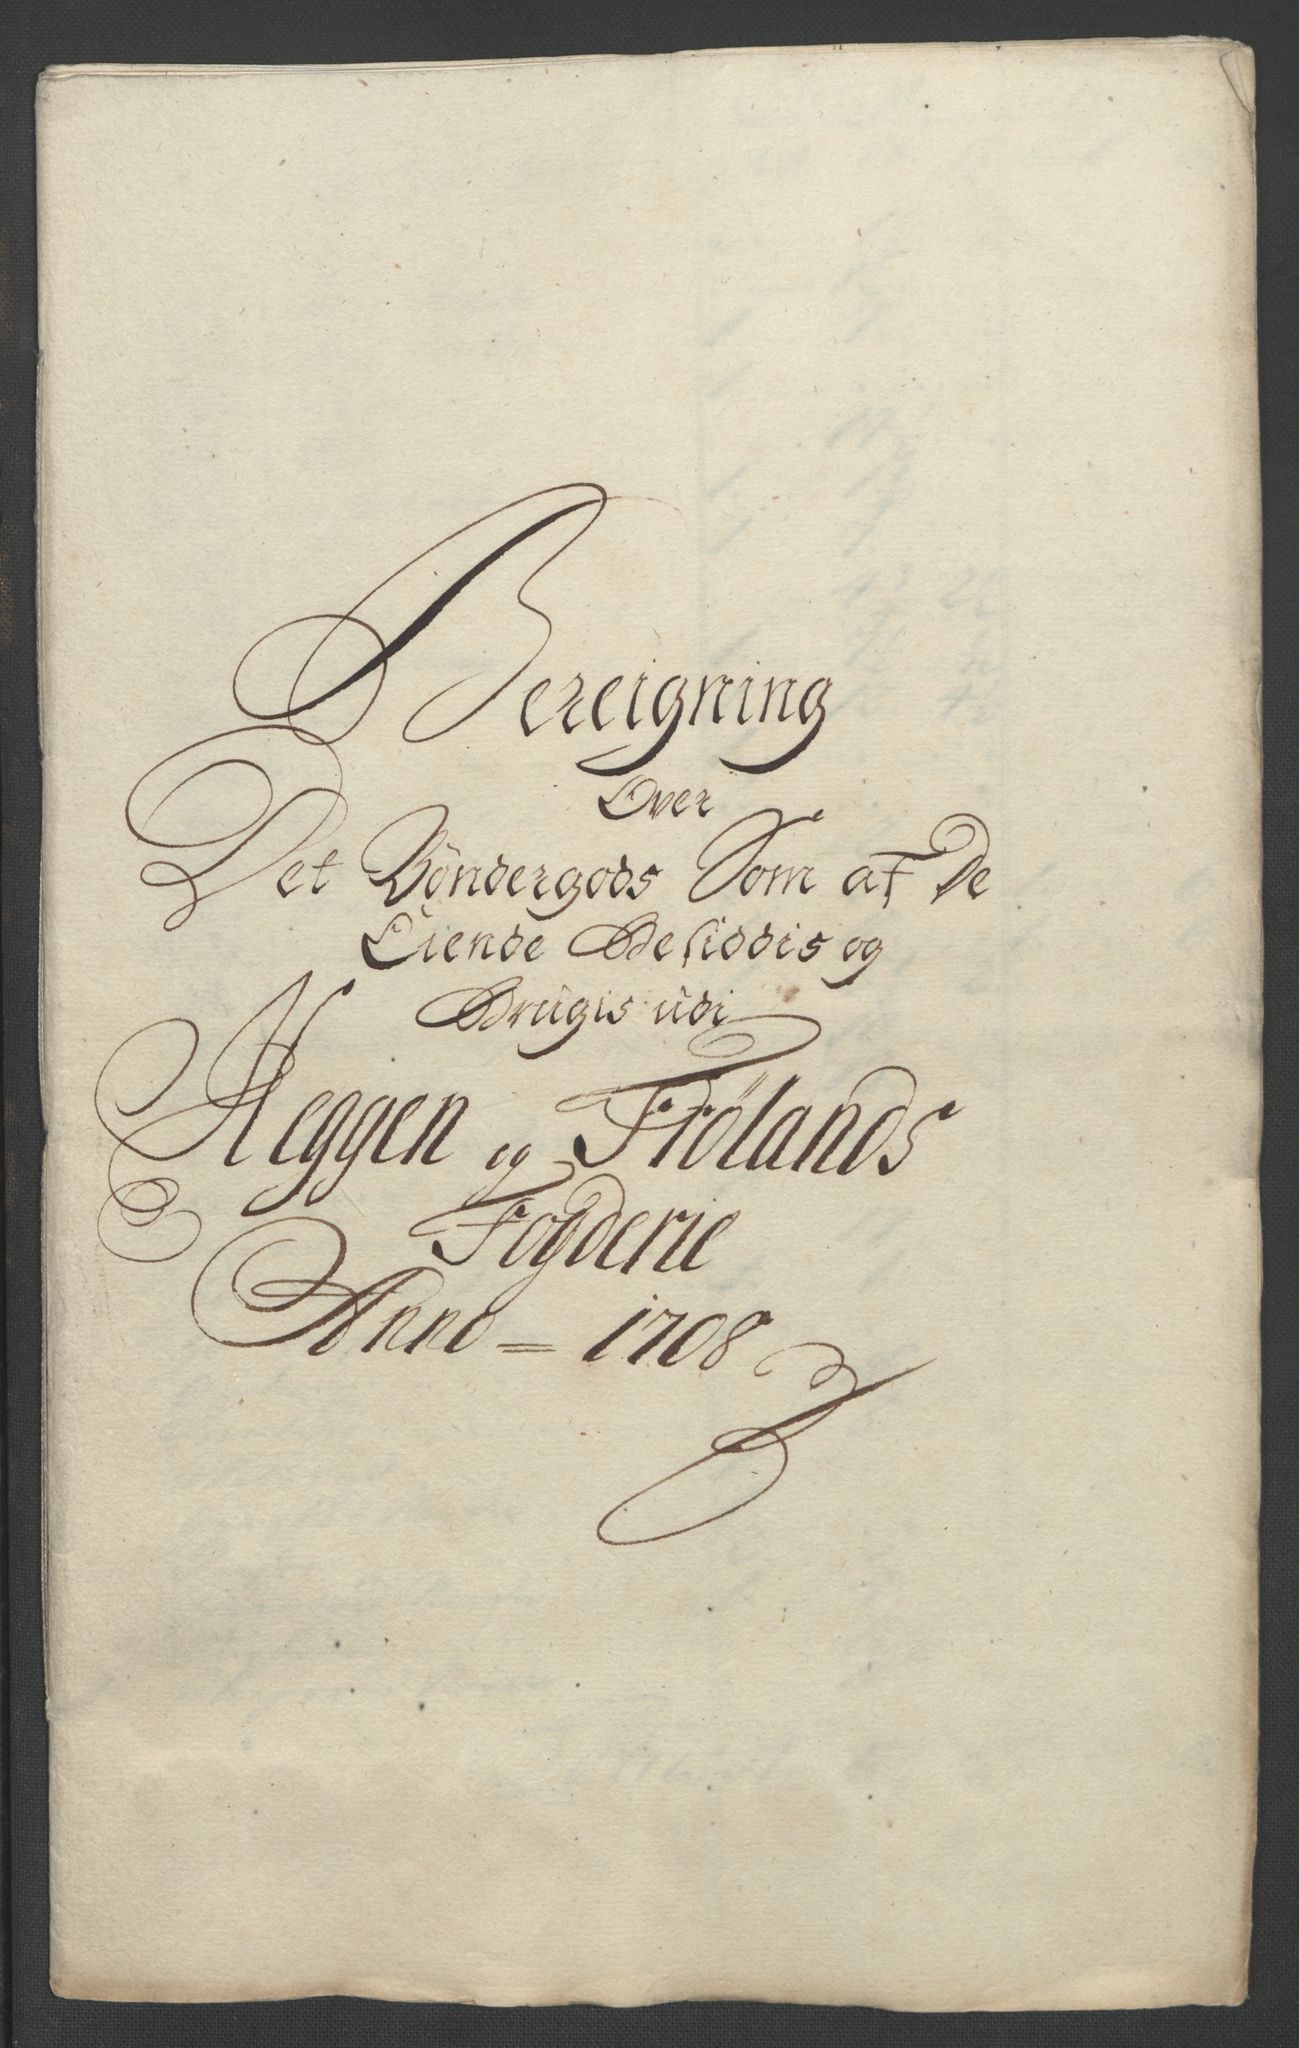 Bereigning
Over
Det Bøndergods Som af De
Eiende Besiddis og
Brugis udi
Heggen og Frølands
Fogderie
Anno = 1708